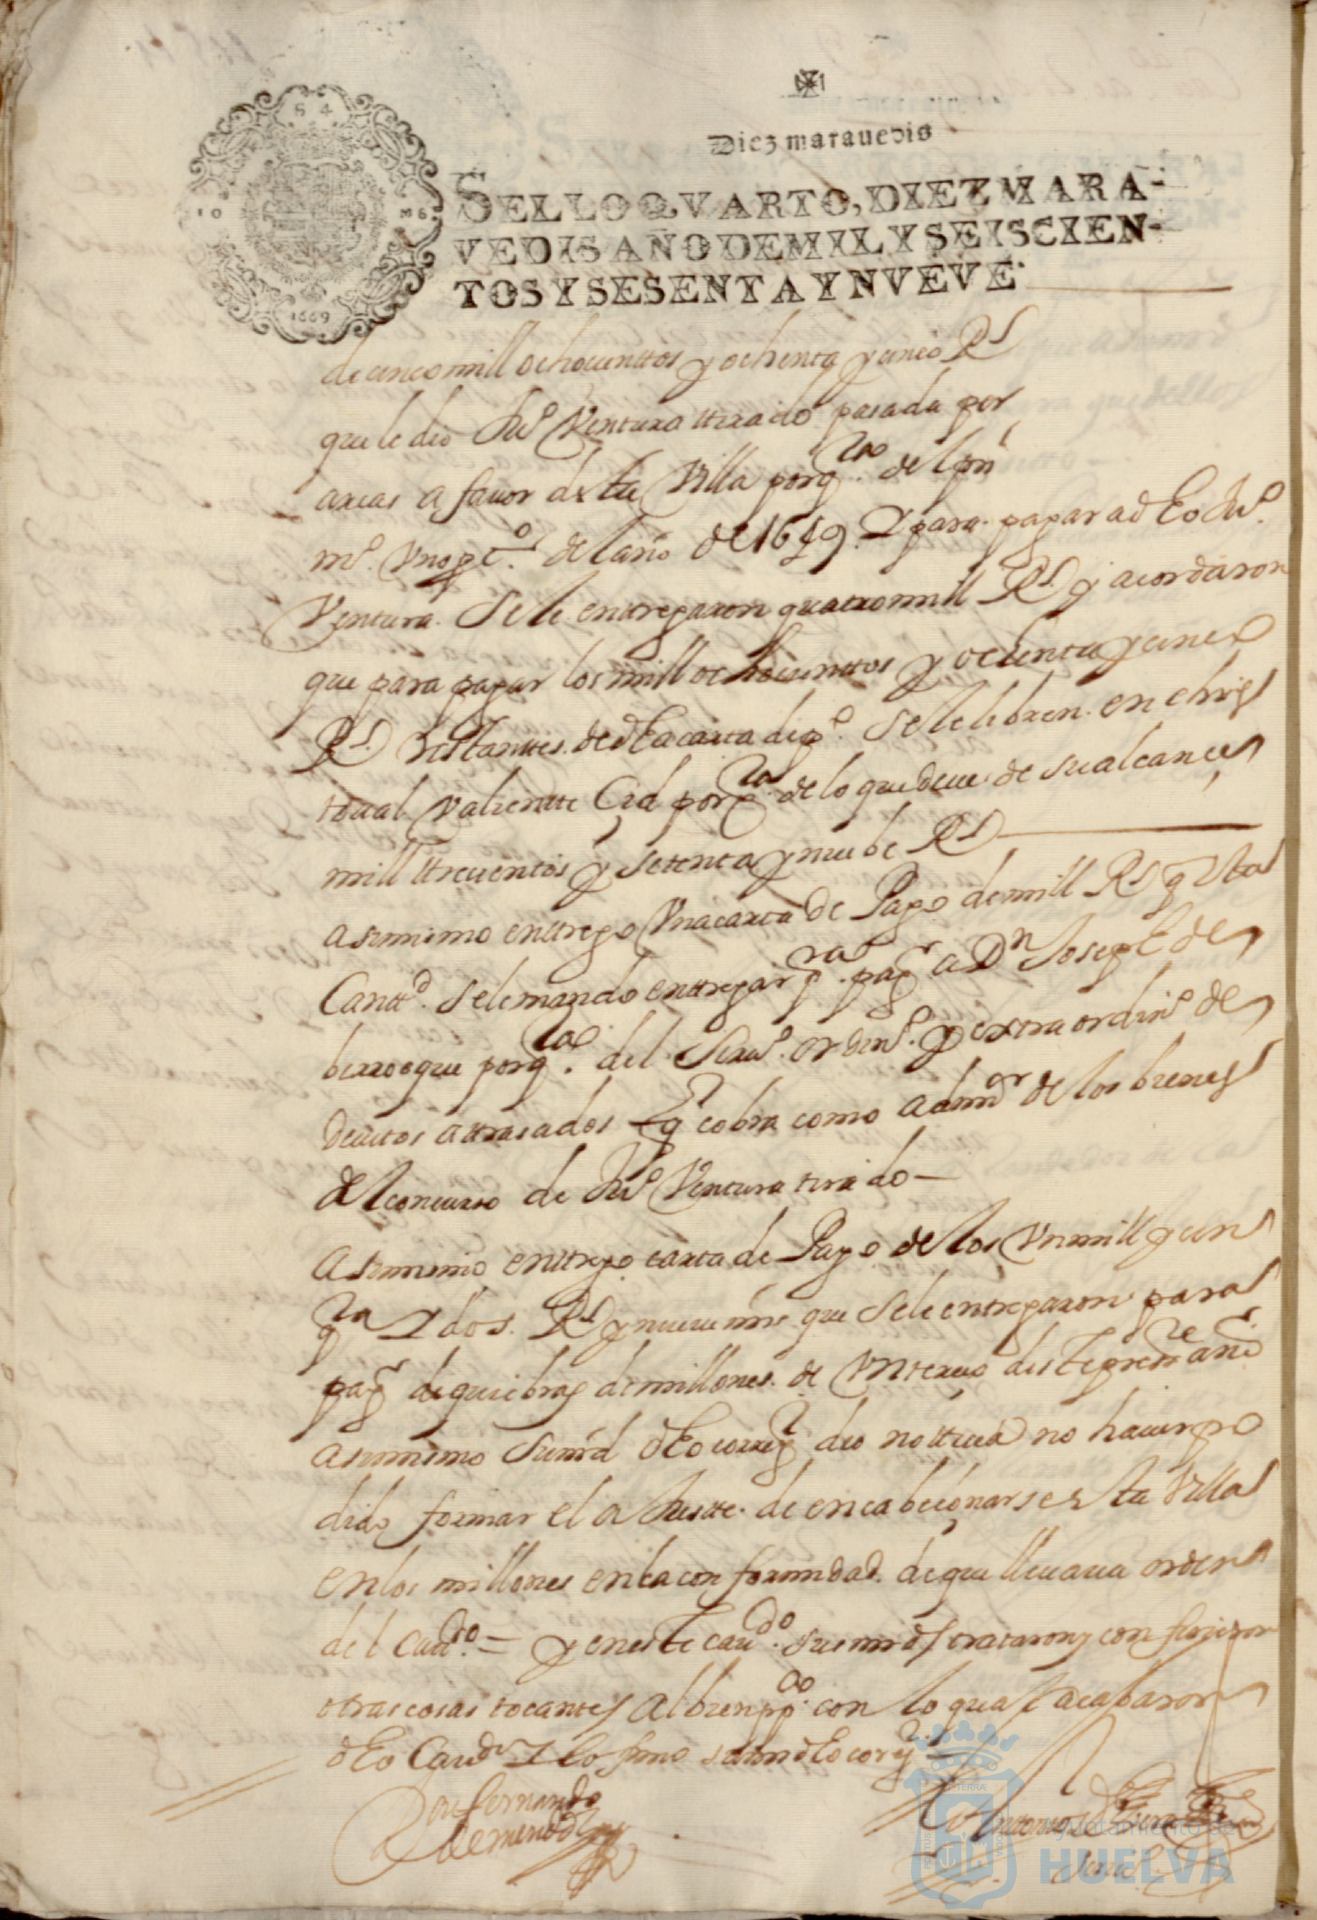 Diez marauedis
SELLO QVARTO, DIEZ MARA-
VEDIS AÑO DE MIL Y SEISCIEN-
TOS Y SESENTA Y NVEVE.
S 4
10 Ms
1669
de cinco mill ochocienttos y ochenta y cinco Rs
que le dio Juº Ventura ttirado pasada por
arcas a fauor desta Villa por qta del pri
mº Vno pcº del año de 1649. Y para pagar a dho Juº
Ventura se le entregaron quatro mill Rs y acordaron
que para pagar los mill ochocienttos y ochenta y cinco
Rs restanttes de dha carta de pº se le libren en chris
toual Valientte Cid por qta de lo que deue de su alcance
mill ttrecientos y setenta y nuebe Rs
asimismo enttrego Vna carta de Pago de mill Rs q esta
Canttd se le mando enttregar pra pagr a Dn Joseph de
berroeque por qta del seruº ordinº y extraordinº de
deuitos attrasados q cobra como admor de los bienes
del concurso de Juº Ventura tirado
asimismo enttrego carta de Pago de los Vn mill y cin
qta Y dos Rs y nueue mrs que se le entregaron para
pagr de quiebras de millones de Vn tercio deste presente año
asimismo su mrd dho correxr dio notticia no hauer po
dido formar el ajustte de encabeçonarse esta Villa
en los millones en la conformidad de que lleuaua orden
del caudo = y en este caudo sus mrds trataron y confirieron
otras cosas tocantes al bien ppco con lo qual acabaron
dho Caudo Y lo firmo su mrd dho corexr
Don fernando
de mendoza
Antonio de
Ayuntamiento de
HUELVA